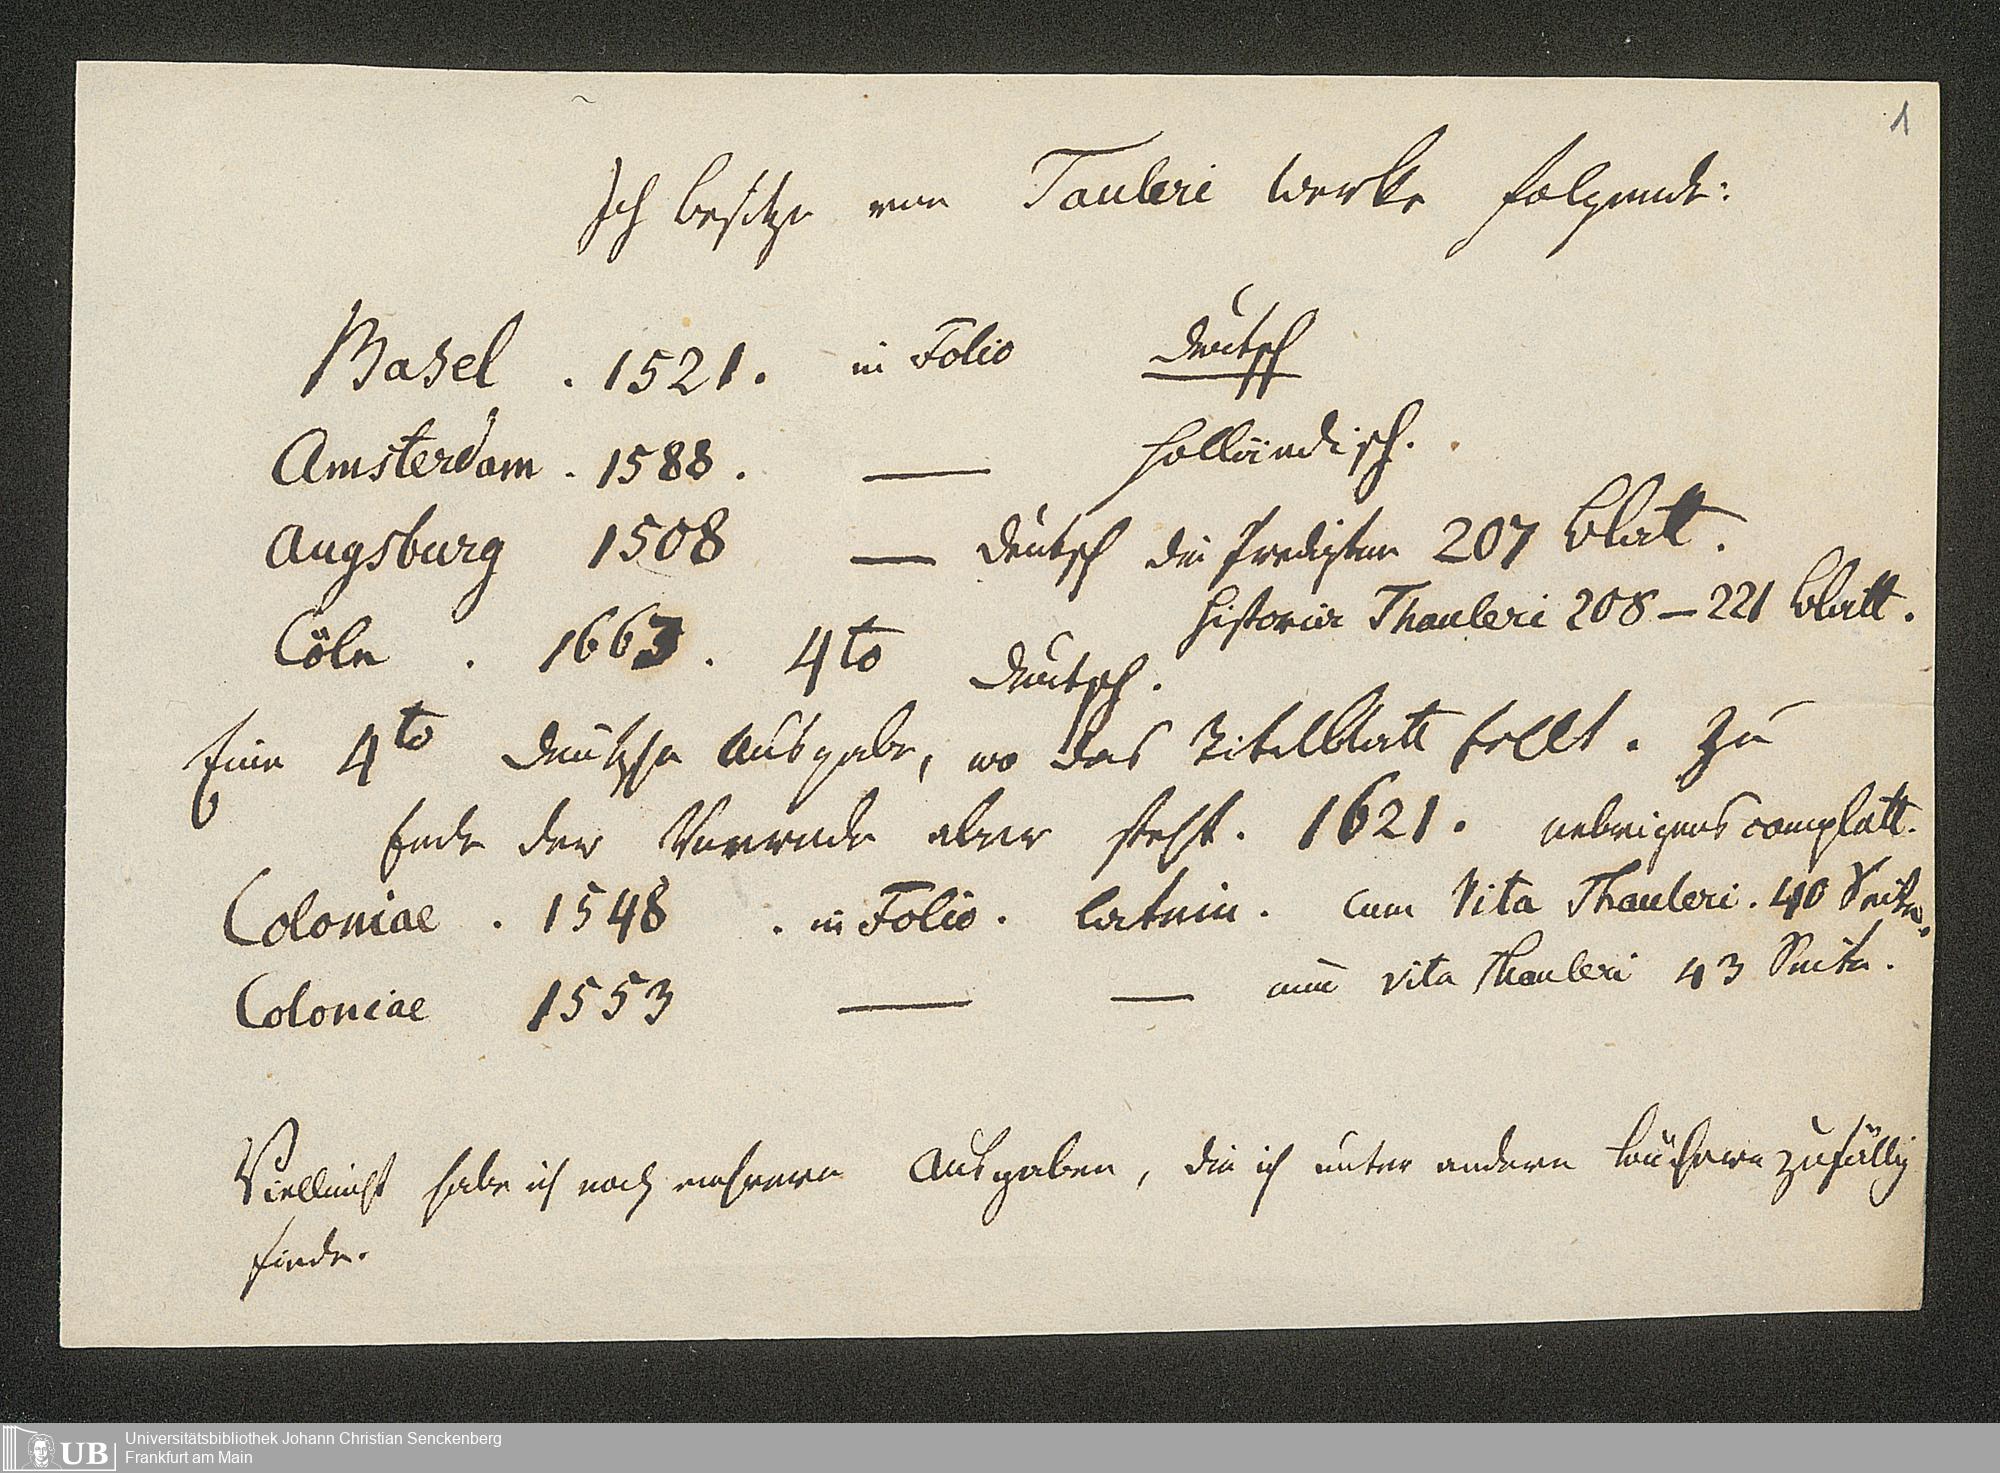 1
Ich besitze von Tauleri Werke folgende:
Basel . 1521. in Folio deutsch
Amsterdam . 1588. — holländisch.
Augsburg 1508 — deutsch die Predigten 207 Blatt.
Historia Thauleri 208 – 221 Blatt.
Cöln . 1663. 4to deutsch.
Eine 4to deutsche Ausgabe, wo das Titelblatt fehlt. Zu
Ende der Vorrede aber steht. 1621. uebrigens complett.
Coloniae . 1548 . in Folio. latein. cum Vita Thauleri. 40 Seiten.
Coloniae 1553 — — cum vita Thauleri 43 Seiten.
Vielleicht habe ich noch mehrere Ausgaben, die ich unter andern Büchern zufällig
finde.
UB
Universitätsbibliothek Johann Christian Senckenberg
Frankfurt am Main